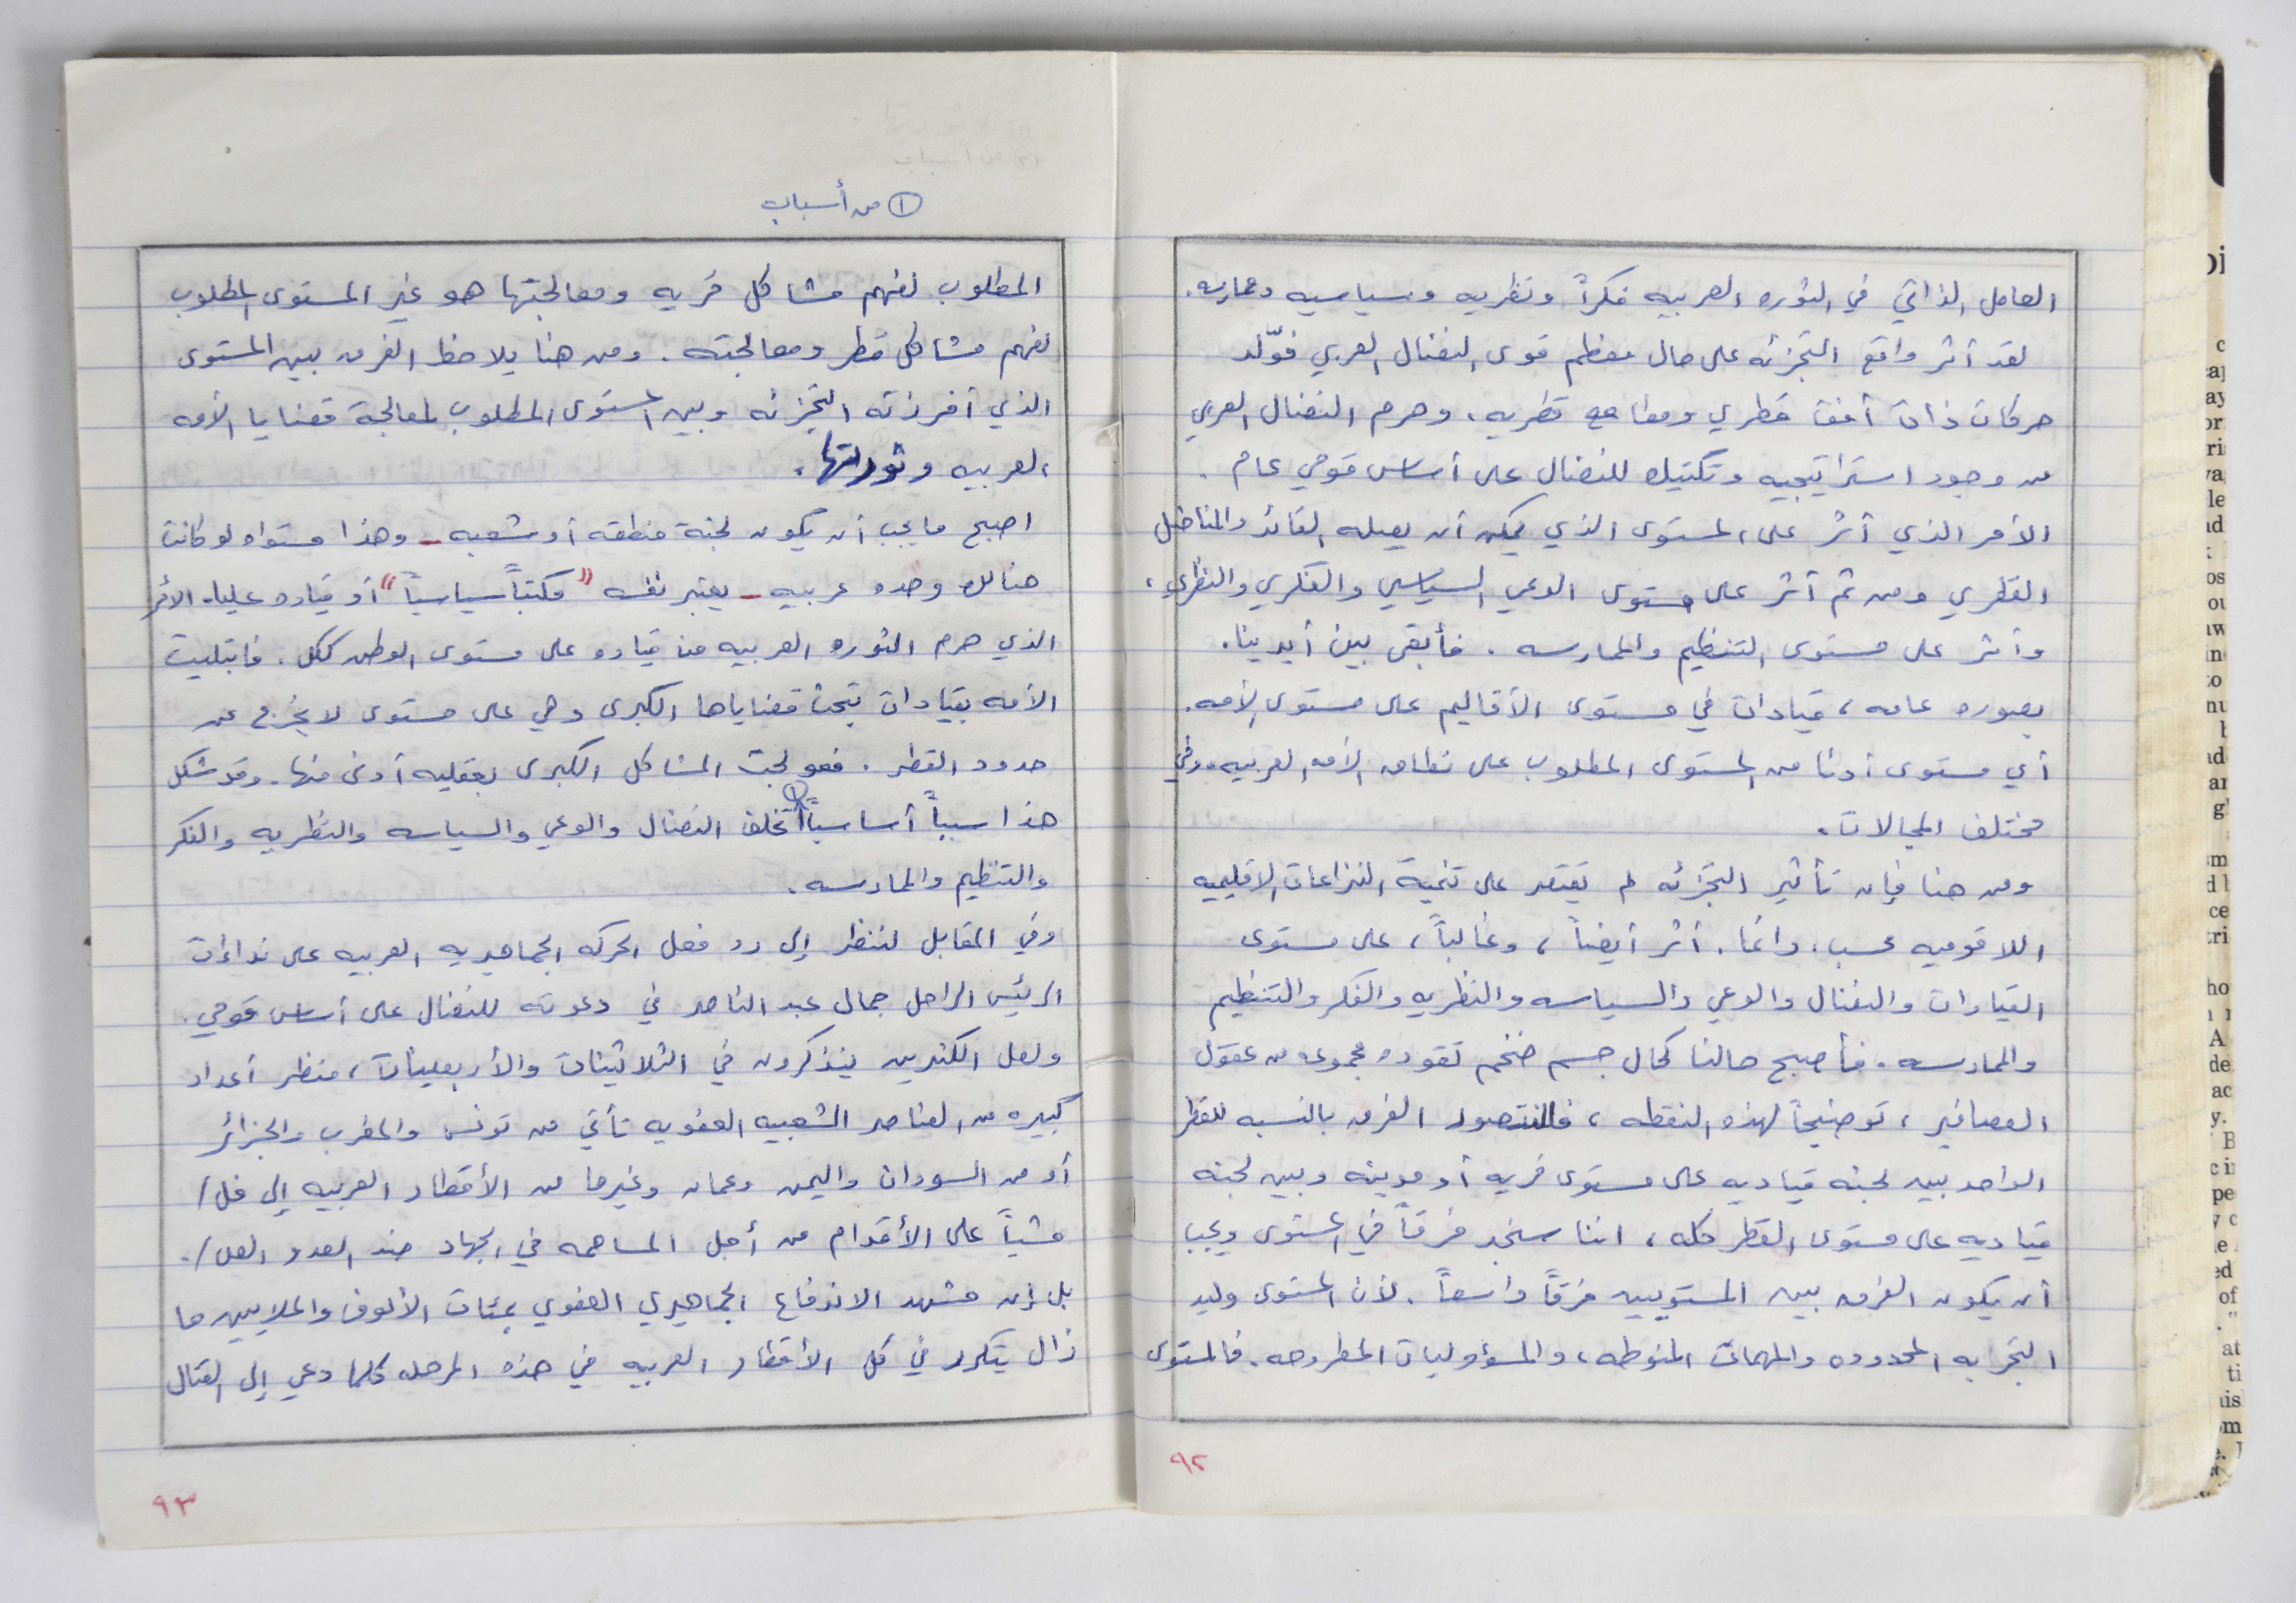 العامل الذاتي في الثوره العربيه فكراً ونظريه وسياسيه وممارسه.
لقد أثر واقع التجزئه على حال معظم قوى النضال العربي فولّد
حركات ذات أفق قطري ومطامح قطريه، وحرم النضال العربي
من وجود استراتيجيه وتكتيك للنضال على أساس قومي عام.
الأمر الذي أثر على المستوى الذي يمكن أن يصله القائد والمناضل
القطري ومن ثم أثر على مستوى الوعي السياسي والفكري والنظري،
وأثر على مستوى التنظيم والممارسه. فأبقى بين أيدينا،
بصوره عامه، قيادات في مستوى الأقاليم على مستوى الأمه.
أي مستوى أدنا من المستوى المطلوب على نطاق الأمه العربيه. وفي
مختلف المجالات.
ومن هنا فإن تأثير التجزئه لم يقتصر على تنمية النزاعات الاقليميه
اللاقوميه حسب. وانما. أثر أيضاً، وغالباً، على مستوى
القيادات والنضال والوعي والسياسه والنظريه والفكر والتنظيم
والممارسه. فأصبح حالنا كحال جسم ضخم تقوده مجموعه من عقول
العصافير، توضيحاً لهذه النقطه، فالنتصور الفرق بالنسبه للقطر
الواحد بين لجنه قياديه على مستوى قريه أو مدينه وبين لجنه
قياديه على مستوى القطر كله، اننا سنجد فرقاً في المستوى ويجب
أن يكون الفرق بين المستويين فرقاً واسعاً. لأن المستوى وليد
التجربه المحدوده والمهمات المنوطه، والمسؤوليات المطروحه. فالمستوى
٩٢
① من أسباب
المطلوب لفهم مشاكل قريه ومعالجتها هو غير المستوى المطلوب
لفهم مشاكل قطر ومعالجته. ومن هنا يلاحظ الفرق بين المستوى
الذي أفرزته التجزئه وبين المستوى المطلوب لمعالجة قضايا الأمه
العربيه وثورتها.
اصبح ما يجب أن يكون لجنة منطقه أو شعبه - وهذا مستواه لو كانت
هنالك وحده عربيه - يعتبر نفسه "مكتباً سياسياً" أو قياده عليا. الأمر
الذي حرم الثوره العربيه من قياده على مستوى الوطن ككل. فابتليت
الأمه بقيادات بحث قضاياها الكبرى وهي على مستوى لا يخرج عن
حدود القطر. فعولجت المشاكل الكبرى بعقليه أدنى منها. وقد شكل
هذا سبباً أساسياً ① تخلف النضال والوعي والسياسه والنظريه والفكر
والتنظيم والممارسه.
وفي المقابل لننظر إلى رد فعل الحركه الجماهيريه العربيه على نداءات
الرئيس الراحل جمال عبد الناصر في دعوته للنضال على أساس قومي.
ولعل الكثيرين يتذكرون في الثلاثينات والأربعينات، منظر أعداد
كبيره من العناصر الشعبيه العفويه تأتي من تونس والمغرب والجزائر
أو من السودان واليمن وعمان وغيرها من الأقطار العربيه إلى فل/
مشياً على الأقدام من أجل المساهمه في الجهاد ضد العدو الص/.
بل إن مشهد الاندفاع الجماهيري العفوي بمئات الألوف والملايين ما
زال يتكرر في كل الأقطار العربيه في هذه المرحله كلما دعي إلى القتال
٩٣